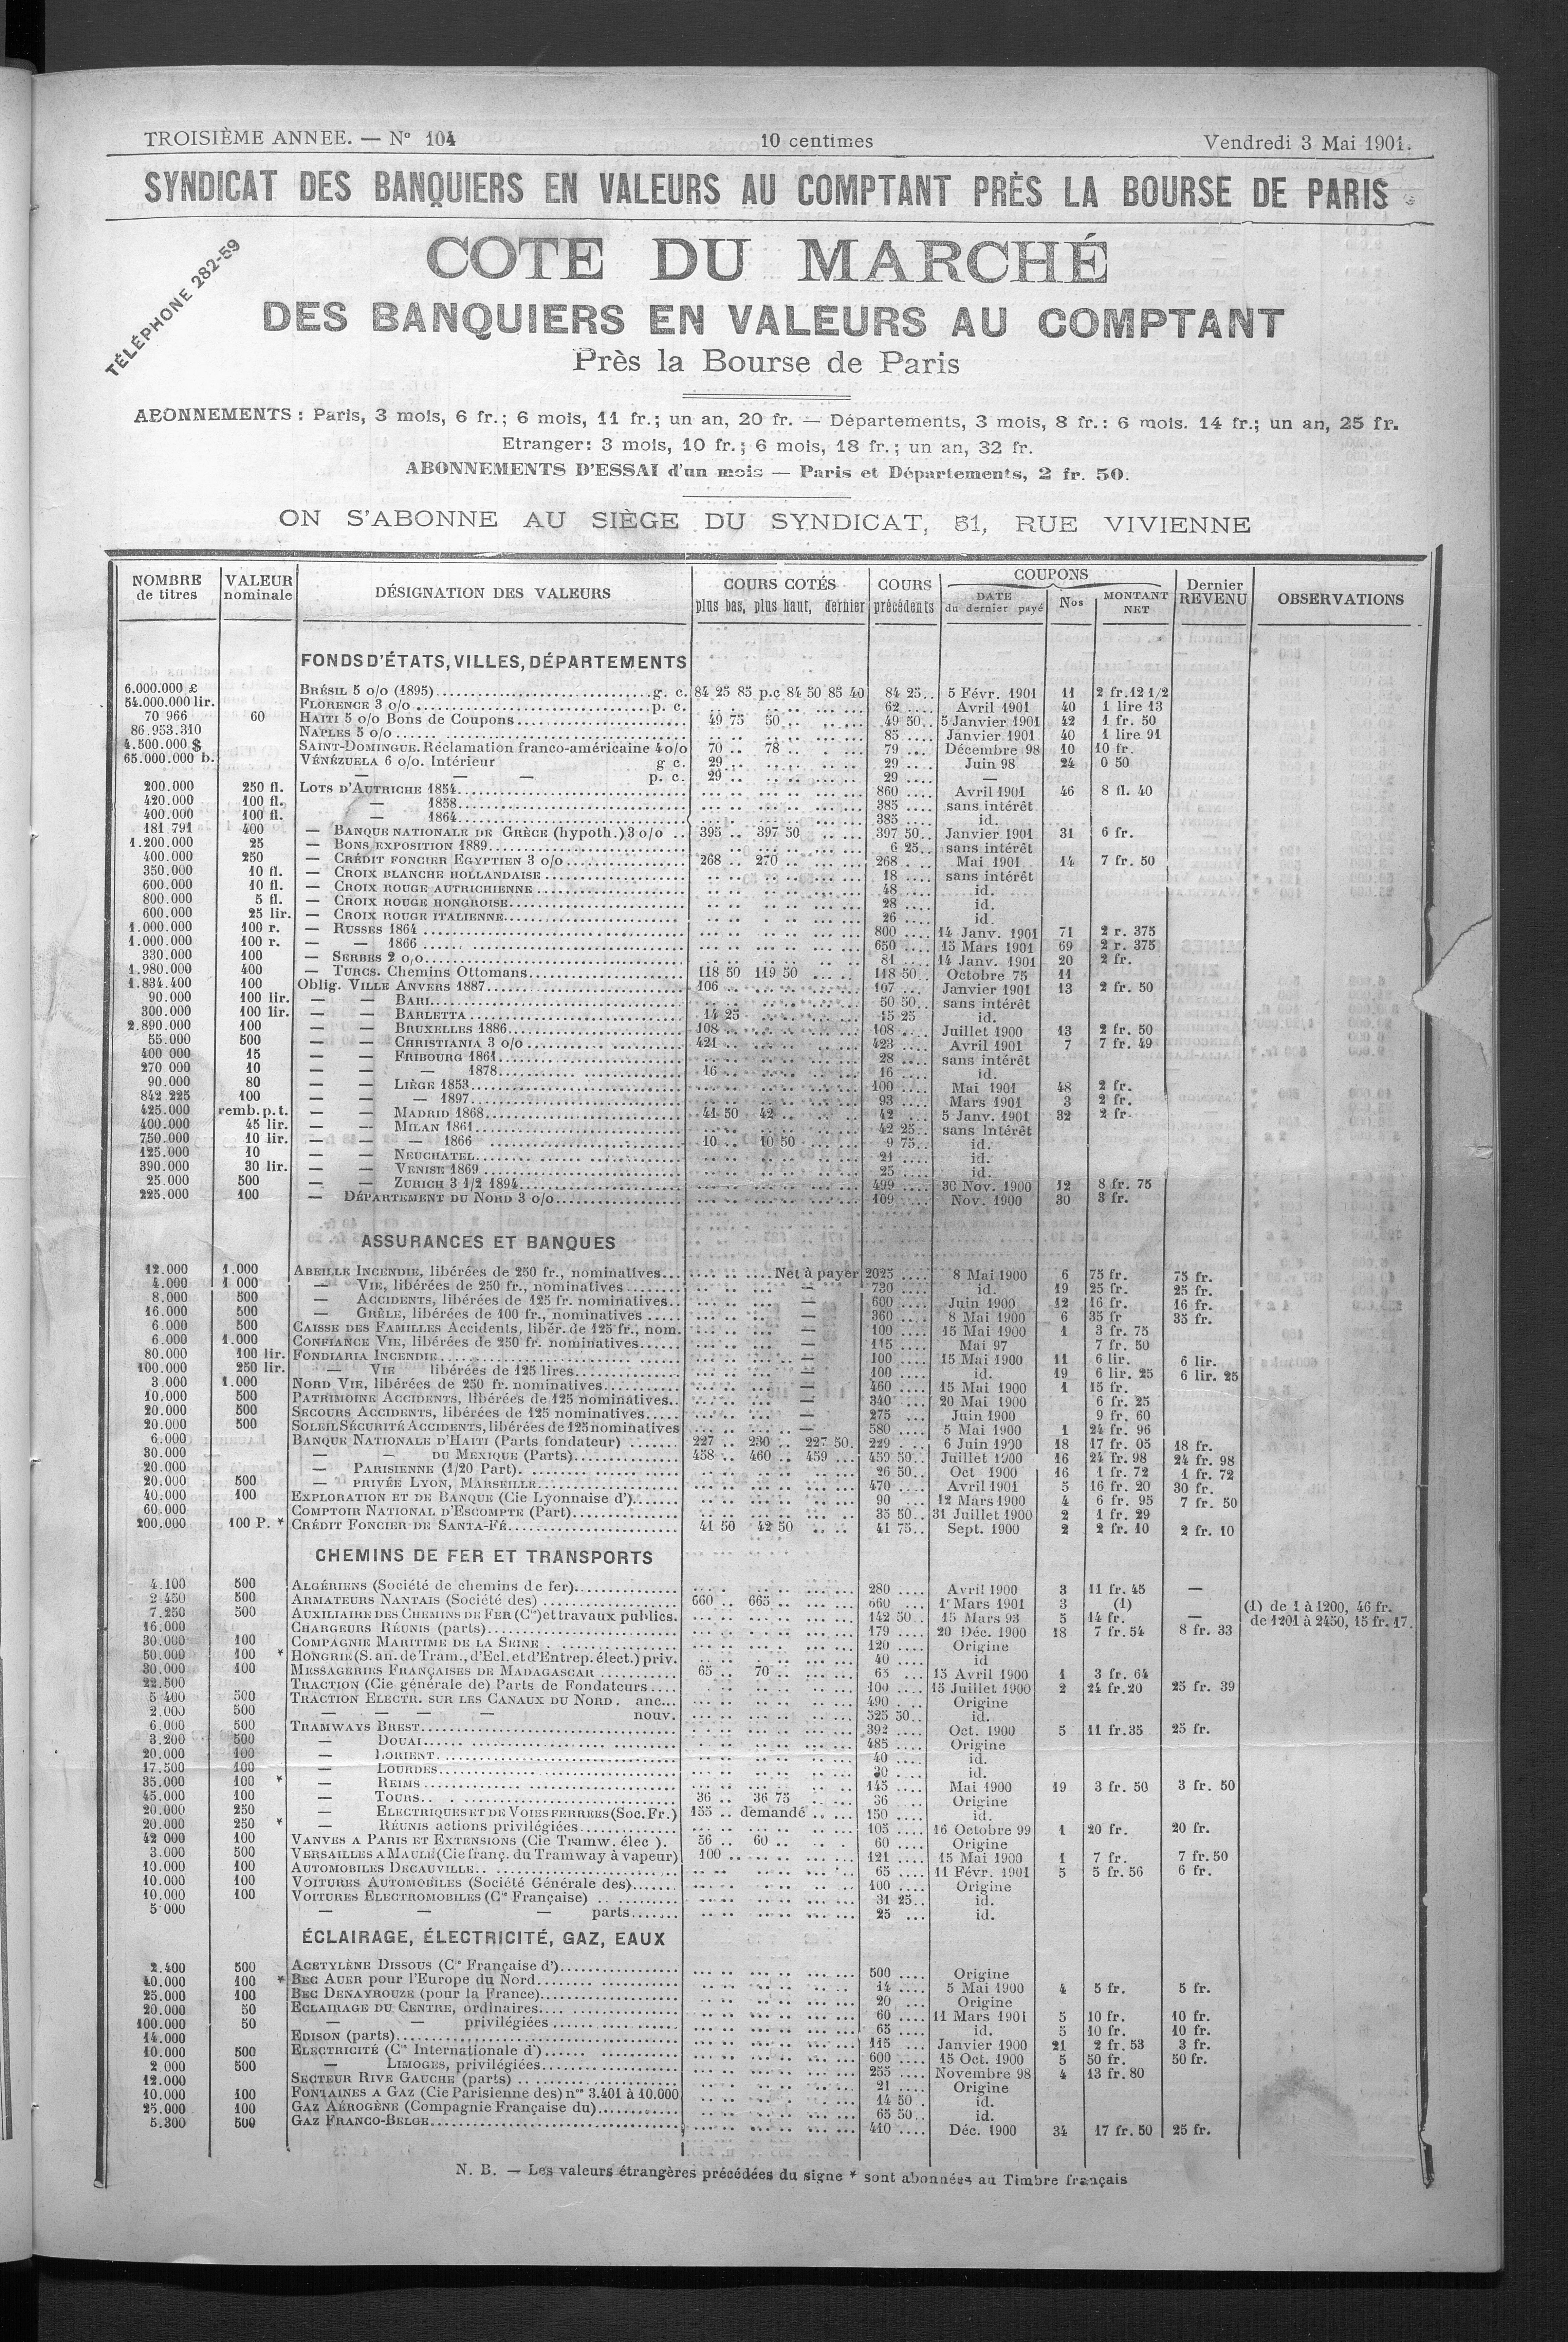 TROISIÈME ANNEE. — N° 104 10 centimes Vendredi 3 Mai 1901.
SYNDICAT DES BANQUIERS EN VALEURS AU COMPTANT PRÈS LA BOURSE DE PARIS
TÉLÉPHONE 282-59
COTE DU MARCHÉ
DES BANQUIERS EN VALEURS AU COMPTANT
Près la Bourse de Paris
ABONNEMENTS : Paris, 3 mois, 6 fr.; 6 mois, 11 fr.; un an, 20 fr. — Départements, 3 mois, 8 fr.: 6 mois. 14 fr.; un an, 25 fr.
Etranger: 3 mois, 10 fr.; 6 mois, 18 fr.; un an, 32 fr.
ABONNEMENTS D'ESSAI d'un mois — Paris et Départements, 2 fr. 50.
ON S'ABONNE AU SIÈGE DU SYNDICAT, 51, RUE VIVIENNE
NOMBRE de titres VALEUR nominale DÉSIGNATION DES VALEURS COURS COTÉS plus bas, plus haut, dernier COURS précédents COUPONS DATE du dernier payé Nos MONTANT NET Dernier REVENU OBSERVATIONS
FONDS D'ÉTATS, VILLES, DÉPARTEMENTS
6.000.000 £ BRÉSIL 5 o/o (1895) g. c. 84 25 85 p.c 84 50 85 40 84 25 5 Févr. 1901 11 2 fr. 12 1/2
54.000.000 lir. FLORENCE 3 o/o p. c. 62 Avril 1901 40 1 lire 13
70 966 60 HAITI 5 o/o Bons de Coupons 49 75 50 49 50 5 Janvier 1901 42 1 fr. 50
86.953.310 NAPLES 5 o/o 85 Janvier 1901 40 1 lire 91
4.500.000 $ SAINT-DOMINGUE. Réclamation franco-américaine 4 o/o 70 78 79 Décembre 98 10 10 fr.
65.000.000 b. VÉNÉZUELA 6 o/o. Intérieur g c. 29 29 Juin 98 24 0 50
— — — p. c. 29 29 —
200.000 250 fl. LOTS D'AUTRICHE 1854 860 Avril 1901 46 8 fl. 40
420.000 100 fl. — 1858 385 sans intérêt
400.000 100 fl. — 1864 385 id.
181.791 400 — BANQUE NATIONALE DE GRÈCE (hypoth.) 3 o/o 395 397 50 397 50 Janvier 1901 31 6 fr.
1.200.000 25 — BONS EXPOSITION 1889 6 25 sans intérêt
400.000 250 — CRÉDIT FONCIER EGYPTIEN 3 o/o 268 270 268 Mai 1901 14 7 fr. 50
350.000 10 fl. — CROIX BLANCHE HOLLANDAISE 18 sans intérêt
600.000 10 fl. — CROIX ROUGE AUTRICHIENNE 48 id.
800.000 5 fl. — CROIX ROUGE HONGROISE 28 id.
600.000 25 lir. — CROIX ROUGE ITALIENNE 26 id.
1.000.000 100 r. — RUSSES 1864 800 14 Janv. 1901 71 2 r. 375
1.000.000 100 r. — — 1866 650 15 Mars 1901 69 2 r. 375
330.000 100 — SERBES 2 o/o 81 14 Janv. 1901 20 2 fr.
1.980.000 400 — TURCS. Chemins Ottomans 118 50 119 50 118 50 Octobre 75 11
1.834.400 100 Oblig. VILLE ANVERS 1887 106 107 Janvier 1901 13 2 fr. 50
90.000 100 lir. — — BARI 50 50 sans intérêt
300.000 100 lir. — — BARLETTA 14 25 15 25 id.
2.890.000 100 — — BRUXELLES 1886 108 108 Juillet 1900 13 2 fr. 50
55.000 500 — — CHRISTIANIA 3 o/o 421 423 Avril 1901 7 7 fr. 49
400 000 15 — — FRIBOURG 1861 28 sans intérêt
270 000 10 — — — 1878 16 16 id.
90.000 80 — — LIÈGE 1853 100 Mai 1901 48 2 fr.
842.225 100 — — — 1897 93 Mars 1901 3 2 fr.
425.000 remb. p. t. — — MADRID 1868 41 50 42 42 5 Janv. 1901 32 2 fr.
400.000 45 lir. — — MILAN 1861 42 25 sans intérêt
750.000 10 lir. — — — 1866 10 10 50 9 75 id.
125.000 10 — — NEUCHATEL 21 id.
390.000 30 lir. — — VENISE 1869 25 id.
25.000 500 — — ZURICH 3 1/2 1894 499 30 Nov. 1900 12 8 fr. 75
225.000 100 — DÉPARTEMENT DU NORD 3 o/o 109 Nov. 1900 30 3 fr.
ASSURANCES ET BANQUES
12.000 1.000 ABEILLE INCENDIE, libérées de 250 fr., nominatives Net à payer 2025 8 Mai 1900 6 75 fr. 75 fr.
4.000 1 000 — VIE, libérées de 250 fr., nominatives — 730 id. 19 25 fr. 25 fr.
8.000 500 — ACCIDENTS, libérées de 125 fr. nominatives — 600 Juin 1900 12 16 fr. 16 fr.
16.000 500 — GRÊLE, libérées de 100 fr., nominatives — 360 8 Mai 1900 6 35 fr 35 fr.
6.000 500 CAISSE DES FAMILLES Accidents, libér. de 125 fr., nom. — 100 15 Mai 1900 1 3 fr. 75
6.000 1.000 CONFIANCE VIE, libérées de 250 fr. nominatives — 115 Mai 97 7 fr. 50
80.000 100 lir. FONDIARIA INCENDIE — 100 15 Mai 1900 11 6 lir. 6 lir.
100.000 250 lir. — VIE libérées de 125 lires — 100 id. 19 6 lir. 25 6 lir. 25
3 000 1.000 NORD VIE, libérées de 250 fr. nominatives — 460 15 Mai 1900 1 15 fr.
10.000 500 PATRIMOINE ACCIDENTS, libérées de 125 nominatives — 340 20 Mai 1900 6 fr. 25
20.000 500 SECOURS ACCIDENTS, libérées de 125 nominatives — 275 Juin 1900 9 fr. 60
20.000 500 SOLEIL SÉCURITÉ ACCIDENTS, libérées de 125 nominatives — 580 5 Mai 1900 1 24 fr. 96
6.000 BANQUE NATIONALE D'HAITI (Parts fondateur) 227 230 227 50 229 6 Juin 1900 18 17 fr. 05 18 fr.
30.000 — DU MEXIQUE (Parts) 458 460 459 459 50 Juillet 1900 16 24 fr. 98 24 fr. 98
20.000 — PARISIENNE (1/20 Part) 26 50 Oct 1900 16 1 fr. 72 1 fr. 72
20.000 500 — PRIVÉE LYON, MARSEILLE 470 Avril 1901 5 16 fr. 20 30 fr.
40.000 100 EXPLORATION ET DE BANQUE (Cie Lyonnaise d') 90 12 Mars 1900 4 6 fr. 95 7 fr. 50
60.000 COMPTOIR NATIONAL D'ESCOMPTE (Part) 35 50 31 Juillet 1900 2 1 fr. 29
200.000 100 P. * CRÉDIT FONCIER DE SANTA-FÉ 41 50 42 50 41 75 Sept. 1900 2 2 fr. 10 2 fr. 10
CHEMINS DE FER ET TRANSPORTS
4.100 500 ALGÉRIENS (Société de chemins de fer) 280 Avril 1900 3 11 fr. 45 —
2 450 500 ARMATEURS NANTAIS (Société des) 660 665 660 1r Mars 1901 3 (1) (1) de 1 à 1200, 46 fr.
7.250 500 AUXILIAIRE DES CHEMINS DE FER (Cie) et travaux publics. 142 50 15 Mars 93 5 14 fr. — de 1201 à 2450, 15 fr. 17.
16.000 CHARGEURS RÉUNIS (parts) 179 20 Déc. 1900 18 7 fr. 54 8 fr. 33
30.000 100 COMPAGNIE MARITIME DE LA SEINE 120 Origine
50.000 100 * HONGRIE (S. an. de Tram., d'Ecl. et d'Entrep. élect.) priv. 40 id
30.000 100 MESSAGERIES FRANÇAISES DE MADAGASCAR 65 70 65 15 Avril 1900 1 3 fr. 64
22.500 TRACTION (Cie générale de) Parts de Fondateurs 100 15 Juillet 1900 2 24 fr. 20 25 fr. 39
5 400 500 TRACTION ELECTR. SUR LES CANAUX DU NORD. anc... 490 Origine
2.000 500 — — — — nouv. 525 50 id.
6.000 500 TRAMWAYS BREST 392 Oct. 1900 5 11 fr. 35 25 fr.
3.200 500 — DOUAI 485 Origine
20.000 100 — LORIENT 40 id.
17.500 100 — LOURDES 30 id.
35.000 100 * — REIMS 145 Mai 1900 19 3 fr. 50 3 fr. 50
45.000 100 — TOURS 36 36 75 36 Origine
20.000 250 — ELECTRIQUES ET DE VOIES FERREES (Soc. Fr.) 155 demandé 150 id.
20.000 250 * — RÉUNIS actions privilégiées 105 16 Octobre 99 1 20 fr. 20 fr.
42 000 100 VANVES A PARIS ET EXTENSIONS (Cie Tramw. élec ). 56 60 60 Origine
3.000 500 VERSAILLES A MAULE (Cie franç. du Tramway à vapeur) 100 121 15 Mai 1900 1 7 fr. 7 fr. 50
10.000 100 AUTOMOBILES DECAUVILLE 65 11 Févr. 1901 5 5 fr. 56 6 fr.
10.000 100 VOITURES AUTOMOBILES (Société Générale des) 100 Origine
10.000 100 VOITURES ELECTROMOBILES (Cie Française) 31 25 id.
5 000 — — — parts 25 id.
ÉCLAIRAGE, ÉLECTRICITÉ, GAZ, EAUX
2.400 500 ACETYLÈNE DISSOUS (Cie Française d') 500 Origine
40.000 100 * BEC AUER pour l'Europe du Nord 14 5 Mai 1900 4 5 fr. 5 fr.
25.000 100 BEC DENAYROUZE (pour la France) 20 Origine
20.000 50 ECLAIRAGE DU CENTRE, ordinaires 60 11 Mars 1901 5 10 fr. 10 fr.
100.000 50 — — privilégiées 65 id. 5 10 fr. 10 fr.
14.000 EDISON (parts) 115 Janvier 1900 21 2 fr. 53 3 fr.
10.000 500 ELECTRICITÉ (Cie Internationale d') 600 15 Oct. 1900 5 50 fr. 50 fr.
2 000 500 — LIMOGES, privilégiées 255 Novembre 98 4 13 fr. 80
12.000 SECTEUR RIVE GAUCHE (parts) 21 Origine
10.000 100 FONTAINES A GAZ (Cie Parisienne des) nos 3.401 à 10.000 14 50 id.
25.000 100 GAZ AÉROGÈNE (Compagnie Française du) 65 50 id.
5.300 500 GAZ FRANCO-BELGE 410 Déc. 1900 34 17 fr. 50 25 fr.
N. B. — Les valeurs étrangères précédées du signe * sont abonnées au Timbre français